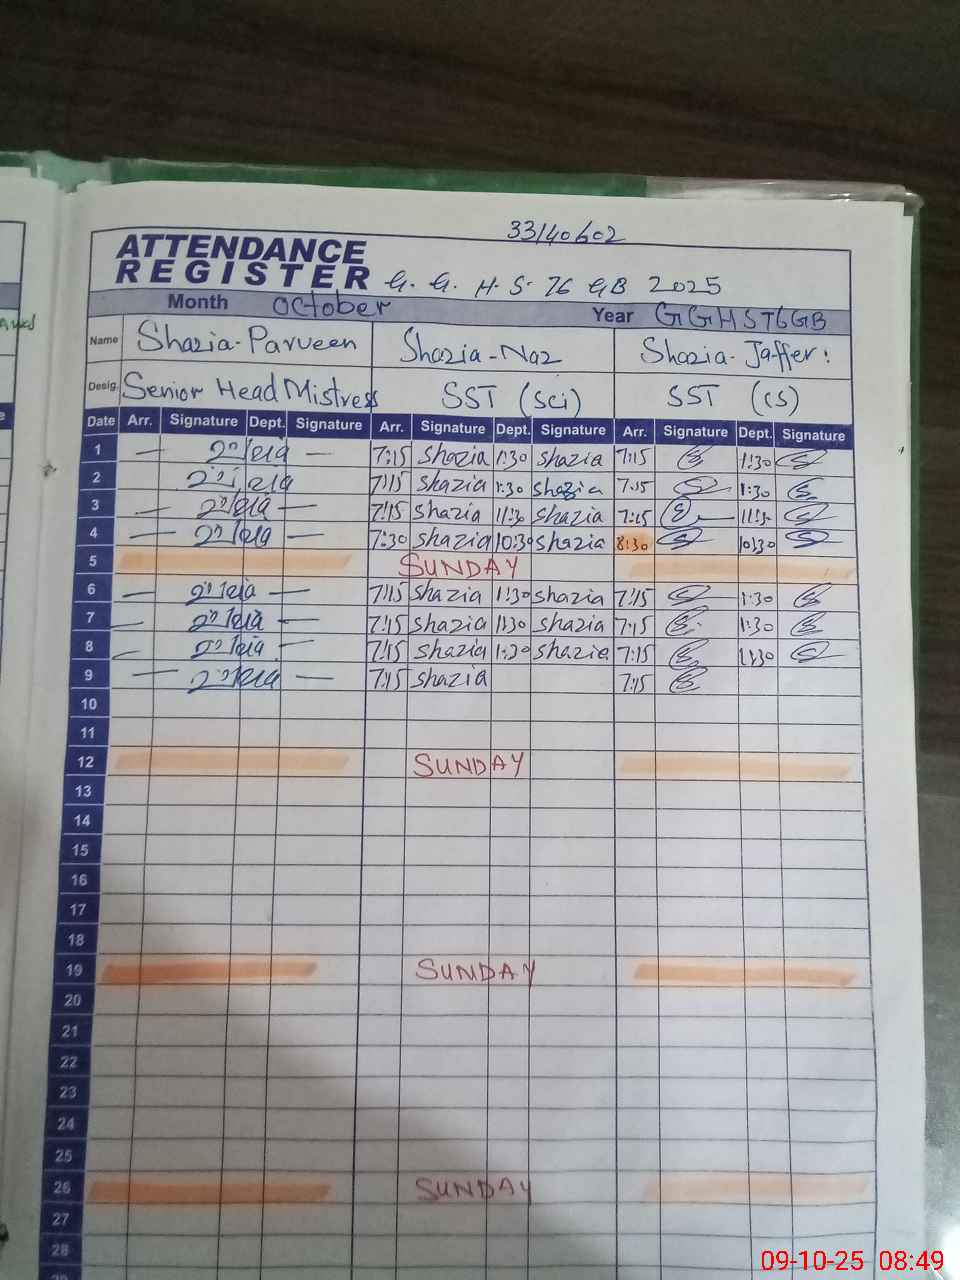 33140602
ATTENDANCE
REGISTER G. G. H. S. 76 GB 2025
Month October Year GGHS 76 GB
Name Shazia Parveen Shazia - Naz Shazia - Jaffer
Desig. Senior Head Mistress SST (sci) SST (cs)
Date Arr. Signature Dept. Signature Arr. Signature Dept. Signature Arr. Signature Dept. Signature
1 7:15 Shazia 1:30 Shazia 7:15 1:30
2 7:15 Shazia 1:30 Shazia 7:15 1:30
3 7:15 Shazia 11:30 Shazia 7:15
4 7:30 Shazia 10:30 Shazia 8:30 10:30
5 SUNDAY
6 7:15 Shazia 1:30 Shazia 7:15 1:30
7 7:15 Shazia 1:30 Shazia 7:15 1:30
8 7:15 Shazia 1:30 Shazia 7:15 1:30
9 7:15 Shazia 7:15
10
11
12 SUNDAY
13
14
15
16
17
18
19 SUNDAY
20
21
22
23
24
25
26 SUNDAY
27
28
09-10-25 08:49